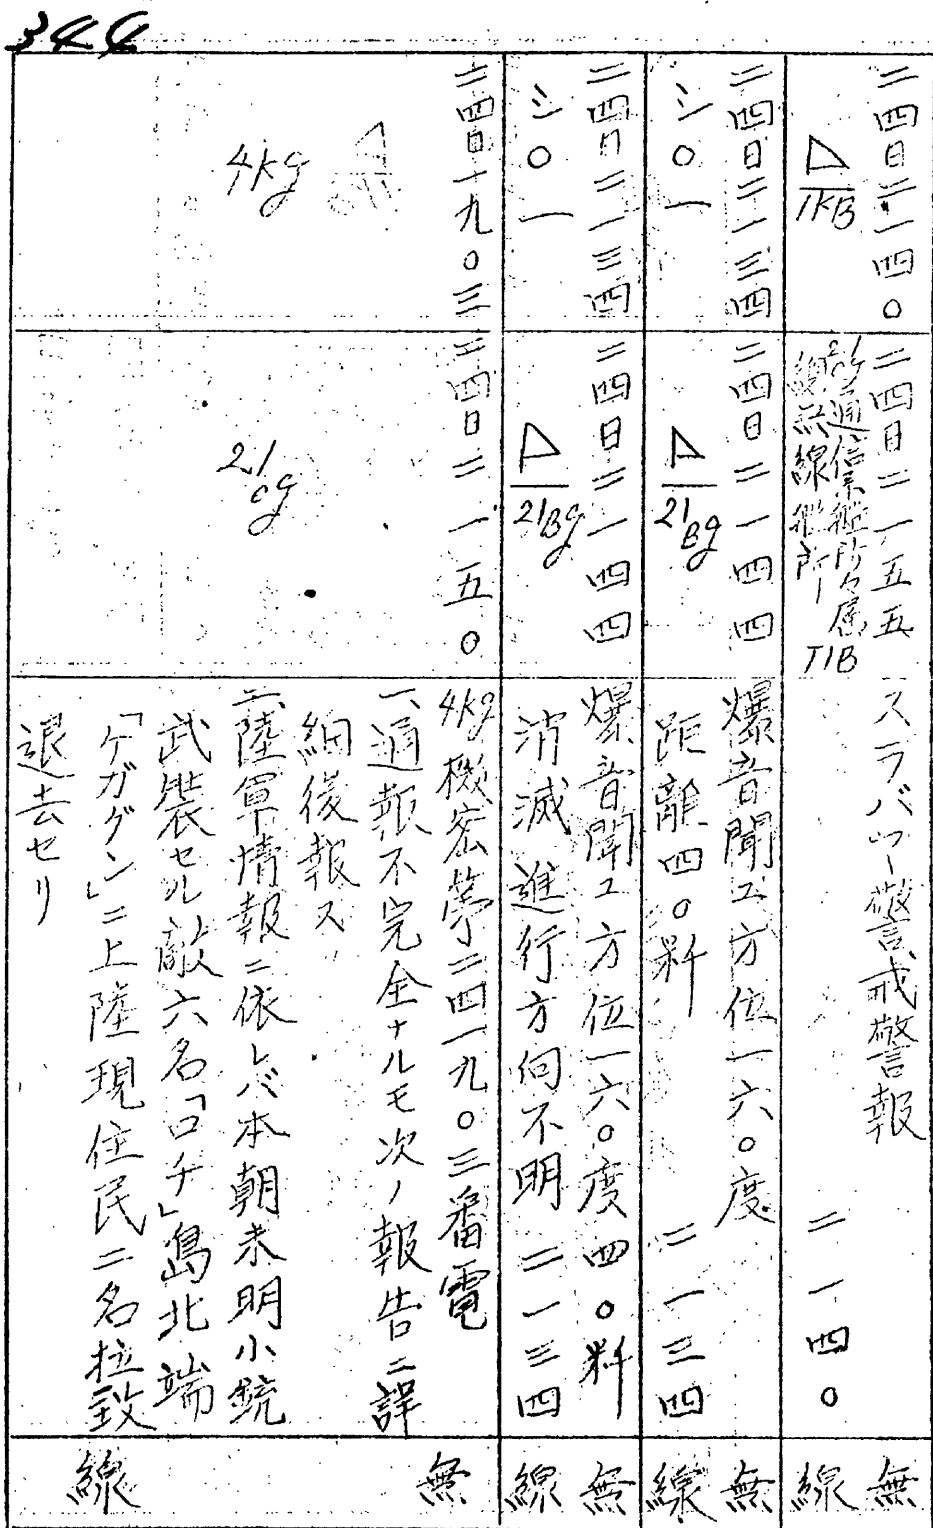 344
二四日二一四〇
1KB
二四日二一五五
TIB
スラバヤー警戒警報
二一四〇
無線
二四日二一三四
シ〇一
二四日二一四四
21Bg
爆音聞エ方位一六〇度
距離四〇粁
二一三四
無線
二四日二一三四
シ〇一
二四日二一四四
21Bg
爆音聞エ方位一六〇度四〇粁
消滅進行方向不明 二一三四
無線
二四日一九〇三
4kg
二四日二一五〇
21cg
4kg機密第二四一九〇三番電
一、通報不完全ナルモ次ノ報告ニ詳
細後報ス
二、陸軍情報ニ依レバ本朝未明小銃
武装セル敵六名「ロチ」島北端
「ケガダン」ニ上陸現住民二名拉致
退去セリ
無線